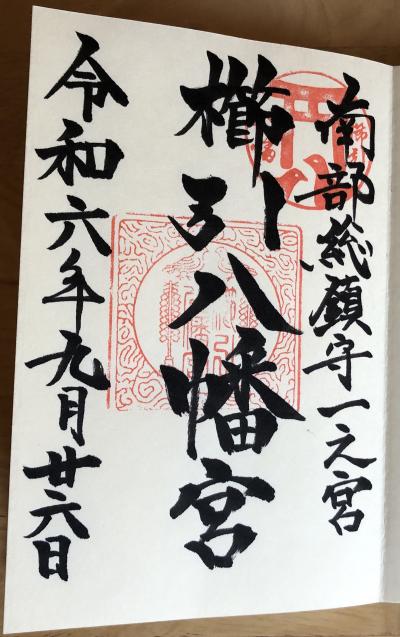 南部総鎮守一之宮
櫛引八幡宮
令和六年九月廿六日